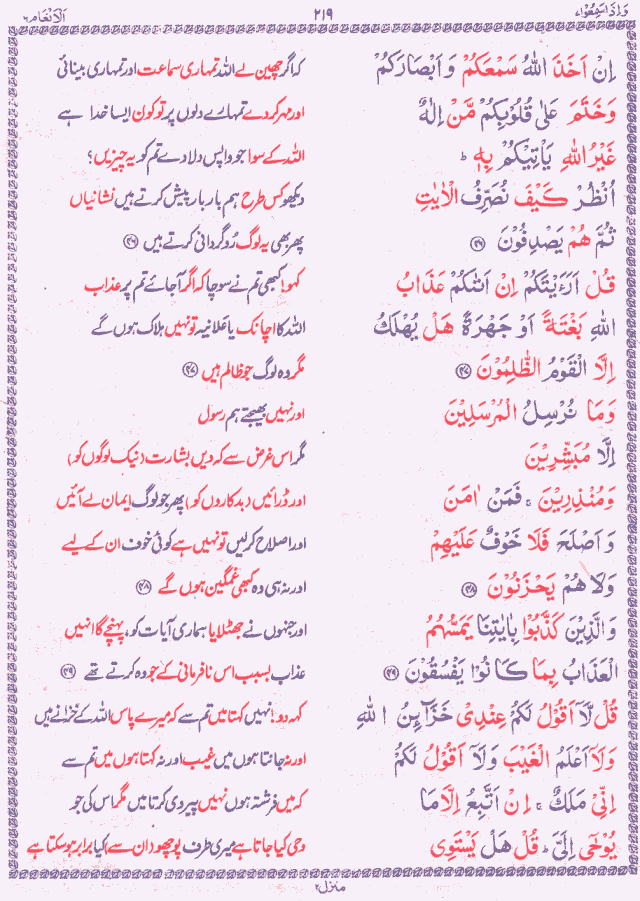 وَاِذَا سَمِعُوْا ۷ ۲۱۹ اَلْاَنْعَام ۶
اِنْ اَخَذَ اللّٰهُ سَمْعَكُمْ وَ اَبْصَارَكُمْ کہ اگر چھین لے اللہ تمہاری سماعت اور تمہاری بینائی
وَخَتَمَ عَلٰى قُلُوْبِكُمْ مَّنْ اِلٰهٌ اور مہر کردے تمہارے دلوں پر تو کون ایسا خدا ہے
غَيْرُ اللّٰهِ يَاْتِيْكُمْ بِهٖ ؕ اللہ کے سوا جو واپس دلا دے تم کو یہ چیزیں؟
اُنْظُرْ كَيْفَ نُصَرِّفُ الْاٰيٰتِ دیکھو کس طرح ہم بار بار پیش کرتے ہیں نشانیاں
ثُمَّ هُمْ يَصْدِفُوْنَ ﴿۴۶﴾ پھر بھی یہ لوگ رُوگردانی کرتے ہیں ﴿۴۶﴾
قُلْ اَرَءَيْتَكُمْ اِنْ اَتٰىكُمْ عَذَابُ کہو! کبھی تم نے سوچا کہ اگر آجائے تم پر عذاب
اللّٰهِ بَغْتَةً اَوْ جَهْرَةً هَلْ يُهْلَكُ اللہ کا اچانک یا علانیہ تو نہیں ہلاک ہوں گے
اِلَّا الْقَوْمُ الظّٰلِمُوْنَ ﴿۴۷﴾ مگر وہ لوگ جو ظالم ہیں ﴿۴۷﴾
وَمَا نُرْسِلُ الْمُرْسَلِيْنَ اور نہیں بھیجتے ہم رسول
اِلَّا مُبَشِّرِيْنَ مگر اس غرض سے کہ دیں بشارت (نیک لوگوں کو)
وَمُنْذِرِيْنَ ۚ فَمَنْ اٰمَنَ اور ڈرائیں (بدکاروں کو) پھر جو لوگ ایمان لے آئیں
وَ اَصْلَحَ فَلَا خَوْفٌ عَلَيْهِمْ اور اصلاح کرلیں تو نہیں ہے کوئی خوف ان کے لیے
وَلَا هُمْ يَحْزَنُوْنَ ﴿۴۸﴾ اور نہ ہی وہ کبھی غمگین ہوں گے ﴿۴۸﴾
وَالَّذِيْنَ كَذَّبُوْا بِاٰيٰتِنَا يَمَسُّهُمُ اور جنہوں نے جھٹلایا ہماری آیات کو، پہنچے گا انہیں
الْعَذَابُ بِمَا كَانُوْا يَفْسُقُوْنَ ﴿۴۹﴾ عذاب بسبب اس نافرمانی کے جو وہ کرتے تھے ﴿۴۹﴾
قُلْ لَّاۤ اَقُوْلُ لَكُمْ عِنْدِىْ خَزَآىِٕنُ اللّٰهِ کہہ دو! نہیں کہتا میں تم سے کہ میرے پاس اللہ کے خزانے ہیں
وَلَاۤ اَعْلَمُ الْغَيْبَ وَلَاۤ اَقُوْلُ لَكُمْ اور نہ جانتا ہوں میں غیب اور نہ کہتا ہوں میں تم سے
اِنِّىْ مَلَكٌ ۚ اِنْ اَتَّبِعُ اِلَّا مَا کہ میں فرشتہ ہوں نہیں پیروی کرتا میں مگر اس کی جو
يُوْحٰۤى اِلَىَّ ؕ قُلْ هَلْ يَسْتَوِى وحی کیا جاتا ہے میری طرف پوچھو ان سے کیا برابر ہو سکتا ہے
منزل ۲